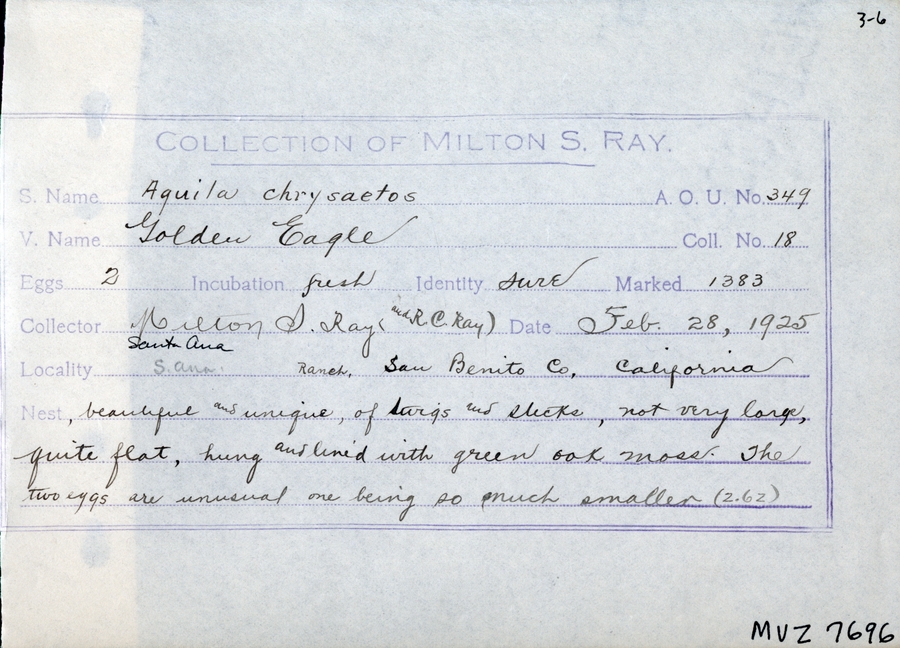 3-6
COLLECTION OF MILTON S. RAY.
S. Name Aquila chrysaetos A. O. U. No. 349
V. Name Golden Eagle Coll. No. 18
Eggs 2 Incubation fresh Identity sure Marked 1383
Collector Milton S. Ray (and R.C. Ray) Date Feb. 28, 1925
Santa Ana
Locality S. ana. Ranch, San Benito Co, California
Nest, beautiful and unique, of twigs and sticks, not very large,
quite flat, hung and lined with green oak moss. The
two eggs are unusual one being so much smaller (2.62)
MVZ 7696